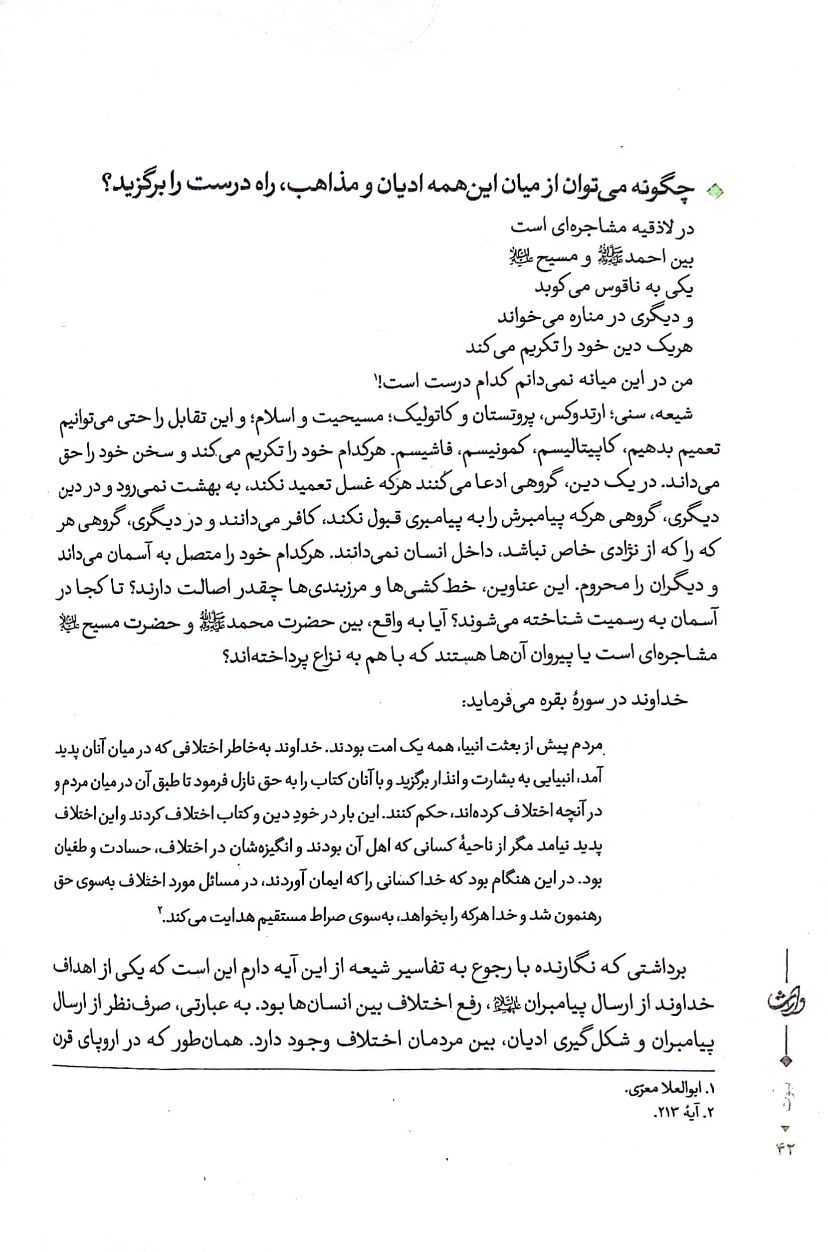 چگونه می‌توان از میان این‌همه ادیان و مذاهب، راه درست را برگزید؟
در لاذقیه مشاجره‌ای است
بین احمد ﷺ و مسیح علیه‌السلام
یکی به ناقوس می‌کوبد
و دیگری در مناره می‌خواند
هریک دین خود را تکریم می‌کند
من در این میانه نمی‌دانم کدام درست است!۱
شیعه، سنی؛ ارتدوکس، پروتستان و کاتولیک؛ مسیحیت و اسلام؛ و این تقابل را حتی می‌توانیم
تعمیم بدهیم، کاپیتالیسم، کمونیسم، فاشیسم. هرکدام خود را تکریم می‌کند و سخن خود را حق
می‌داند. در یک دین، گروهی ادعا می‌کنند هرکه غسل تعمید نکند، به بهشت نمی‌رود و در دین
دیگری، گروهی هرکه پیامبرش را به پیامبری قبول نکند، کافر می‌دانند و در دیگری، گروهی هر
که را که از نژادی خاص نباشد، داخل انسان نمی‌دانند. هرکدام خود را متصل به آسمان می‌داند
و دیگران را محروم. این عناوین، خط‌کشی‌ها و مرزبندی‌ها چقدر اصالت دارند؟ تا کجا در
آسمان به رسمیت شناخته می‌شوند؟ آیا به واقع، بین حضرت محمد ﷺ و حضرت مسیح علیه‌السلام
مشاجره‌ای است یا پیروان آن‌ها هستند که با هم به نزاع پرداخته‌اند؟
خداوند در سورهٔ بقره می‌فرماید:
مردم پیش از بعثت انبیا، همه یک امت بودند. خداوند به‌خاطر اختلافی که در میان آنان پدید
آمد، انبیایی به بشارت و انذار برگزید و با آنان کتاب را به حق نازل فرمود تا طبق آن در میان مردم و
در آنچه اختلاف کرده‌اند، حکم کنند. این بار در خودِ دین و کتاب اختلاف کردند و این اختلاف
پدید نیامد مگر از ناحیهٔ کسانی که اهل آن بودند و انگیزه‌شان در اختلاف، حسادت و طغیان
بود. در این هنگام بود که خدا کسانی را که ایمان آوردند، در مسائل مورد اختلاف به‌سوی حق
رهنمون شد و خدا هرکه را بخواهد، به‌سوی صراط مستقیم هدایت می‌کند.۲
برداشتی که نگارنده با رجوع به تفاسیر شیعه از این آیه دارم این است که یکی از اهداف
خداوند از ارسال پیامبران علیهم‌السلام، رفع اختلاف بین انسان‌ها بود. به عبارتی، صرف‌نظر از ارسال
پیامبران و شکل‌گیری ادیان، بین مردمان اختلاف وجود دارد. همان‌طور که در اروپای قرن
۱. ابوالعلا معرّی.
۲. آیهٔ ۲۱۳.
وارث
نبوت
۴۲